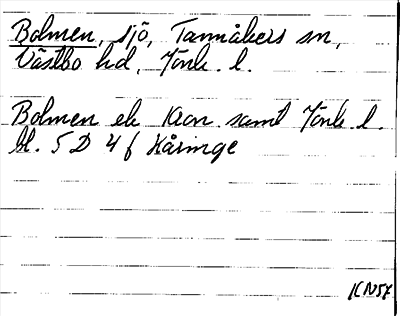 Bolmen, sjö, Tannåkers sn,
Västbo hd, Jönk. l.
Bolmen ek Kron. samt Jönk l.
bl. 5 D 4 f Kåringe
KN57